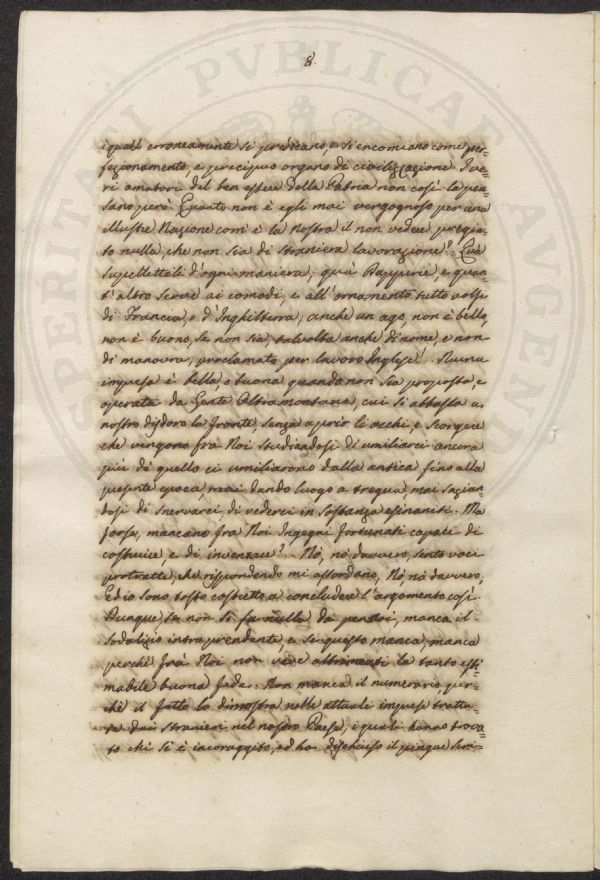 8
i quali erroneamente si predicano, e si encomiano come per=
fezionamento, e precipuo organo di civilizzazione. I ve=
ri amatori del ben essere della Patria non così la pen=
sano però. Quanto non è egli mai vergognoso per una
illustre Nazione com'è la nostra il non vedere pregia=
to nulla, che non sia di straniera lavorazione? Quà
Supellettili d'ogni maniera, quà e quan=
t'altro serve ai comodi, e all'ornamento tutto volsi
di Francia, o d'Inghilterra, anche un ago, non è bello,
non è buono, se non sia, talvolta anche di nome, e non
di manovra, proclamato per lavoro Inglese! Niuna
impresa è bella, o buona quando non sia proposta, e
operata da Gente Oltramontana, cui si abbassa a
nostro disdoro la fronte senza aprir li occhi, e scorgere
che vengono frà Noi studiandosi di umiliarci ancora
più di quello ci umiliarono dalla antica fino alla
presente epoca, mai dando luogo a tregua, mai sazian=
dosi di snervarci di vederci in sostanza esinaniti. Ma
forse, mancano frà Noi Ingegni fortunati capaci di
costruire, e di inventare? Nò, nò davvero, sento voci
protratte, che rispondendo mi assordano, Nò, nò davvero,
Ed io sono tosto costretto a concludere l'argomento così.
Dunque se non si fa nulla da per noi, manca il
Sodalizio intraprendente, e se questo manca, manca
perchè frà Noi non vi è altrimenti la tanto esti=
mabile buona fede. Non manca il numerario, per=
chè il fatto lo dimostra nelle attuali imprese tratta=
te dai stranieri nel nostro Paese, i quali hanno trova=
to chi si è incoraggito, ed ha dischiuso il pingue scri=